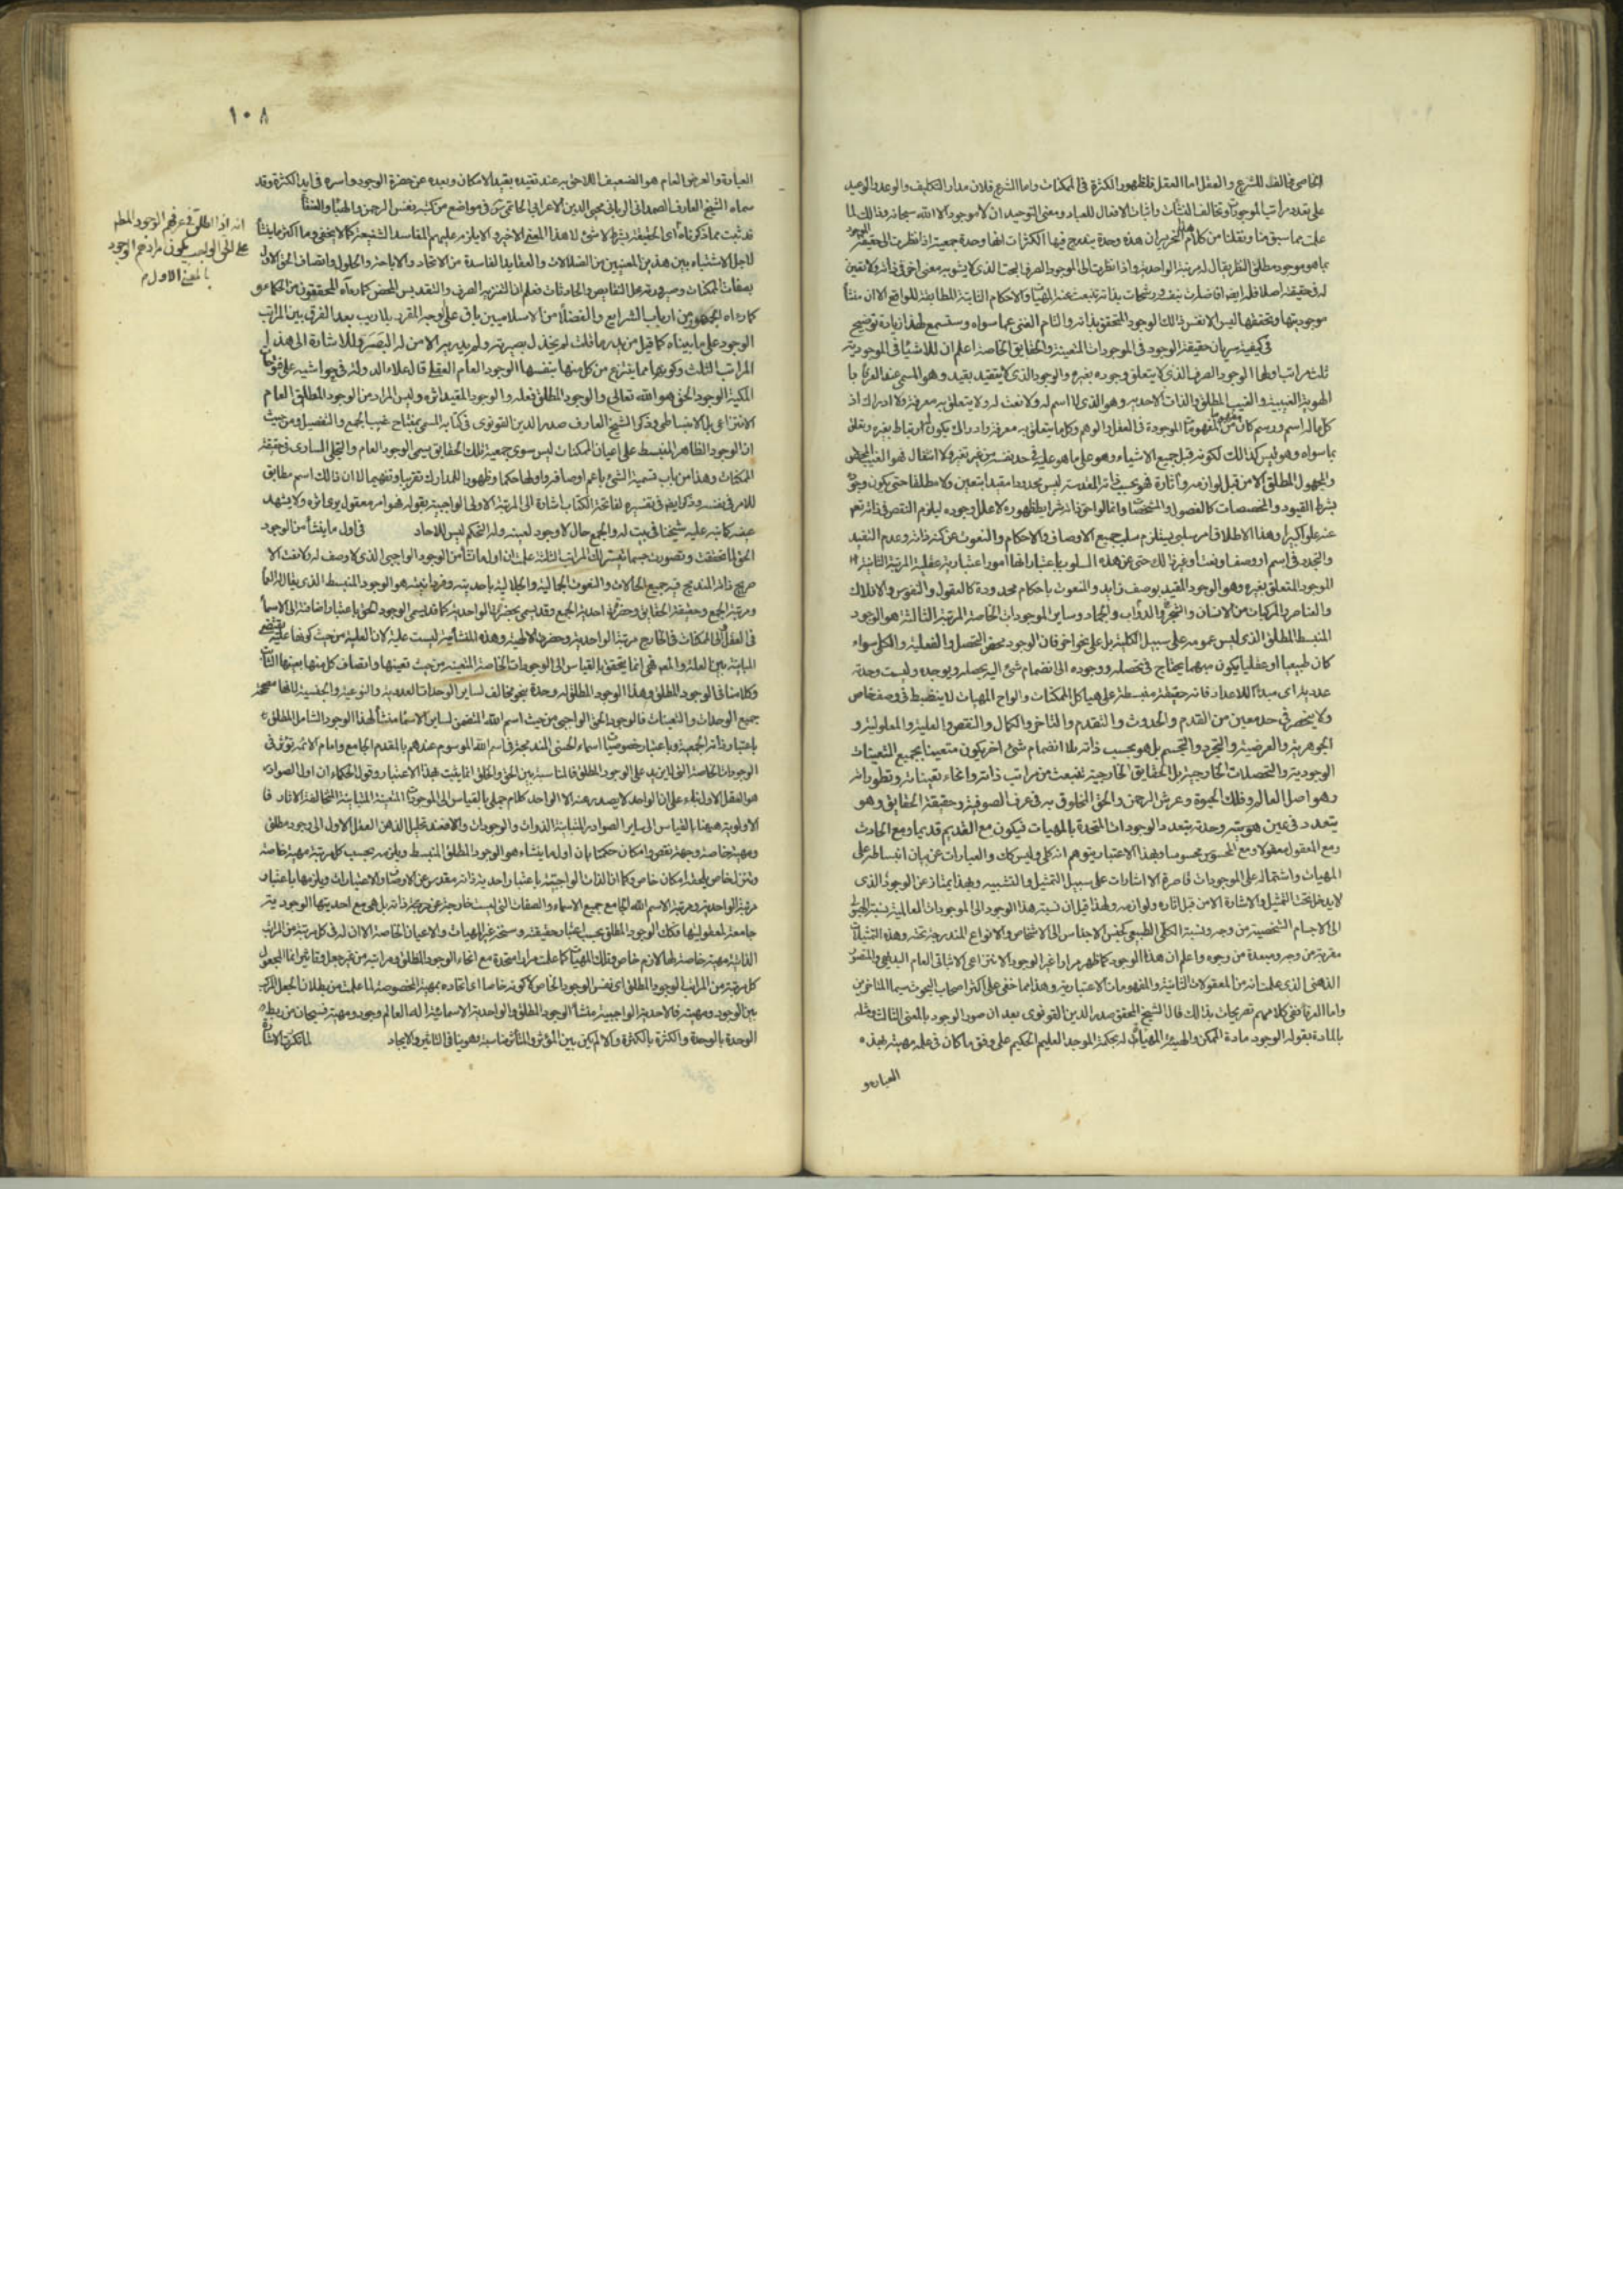 الخاصي مخالف للشرع والعقل اما العقل فلظهور الكثرة في الممكنات واما الشرع فلان مدار التكليف والوعد والوعيد
على تعدد مراتب الموجودات وتخالف النشآت واثبات الافعال للعباد ومعنى التوحيد ان لا موجود الا الله سبحانه وذلك لما
علمت مما سبق منا ونقلنا من كلام هذا النحرير ان هذه وحدة يندرج فيها الكثرات انها وحدة جمعية اذا نظرت الى حقيقة الوجود
بما هو موجود مطلق النظر يقال له مرتبة الواحدية واذا نظرت الى الموجود الصرف البحت الذي لا يشوبه معنى اخر في ذاته ولا تعين
له في حقيقته اصلا
موجوديتها وتحققها اليس الا نفس ذلك الوجود المتحقق بذاته والتام الغني عما سواه وستسمع لهذا زيادة توضيح
في كيفية سريان حقيقة الوجود في الموجودات المتعينة والحقايق الخاصة اعلم ان للاشياء في الموجودية
ثلث مراتب اولها الوجود الصرف الذي لا يتعلق وجوده بغيره والوجود الذي لا يتقيد بقيد وهو المسمى عند العرفاء با
الهوية الغيبية والغيب المطلق والذات الاحدية وهو الذي لا اسم له ولا نعت له ولا يتعلق به معرفة ولا ادراك اذ
كل ما له اسم ورسم كان مفهوما من المفهومات الموجودة في العقل او الوهم وكل ما يتعلق به معرفة وادراك يكون له ارتباط بغيره وتعلق
بما سواه وهو ليس كذلك لكونه قبل جميع الاشياء وهو على ما هو عليه في حد نفسه من غير تغير ولا انتقال فهو الغيب المحض
والمجهول المطلق الا من قبل لوازمه وآثاره فهو بحسب ذاته المقدسة ليس محدودا مقيدا بتعين ولا مطلقا حتى يكون وجوده
بشرط القيود والمخصصات كالفصول والمشخصات وانما لواحق ذاته شرايط ظهوره لا علل وجوده ليلزم النقص في ذاته تعالى
عنه علوا كبيرا وهذا الاطلاق امر سلبي يستلزم سلب جميع الاوصاف والاحكام والنعوت عن كنه ذاته وعدم التقيد
والتجدد في اسم او وصف او نعت او غير ذلك حتى عن هذه السلوب باعتبار انها امور اعتبارية عقلية المرتبة الثانية
الموجود المتعلق بغيره وهو الوجود المقيد بوصف زايد والمنعوت باحكام محدودة كالعقول والنفوس والافلاك
والعناصر والمركبات من الانسان والشجر والدواب والجماد وساير الموجودات الخاصة المرتبة الثالثة هو الوجود
المنبسط المطلق الذي ليس عمومه على سبيل الكلية بل على نحو اخر فان الوجود محض التحصل والفعلية والكلي سواء
كان طبيعيا او عقليا يكون مبهما يحتاج في تحصله ووجوده الى انضمام شيء اليه يحصله ويوجده وليست وحدته
عددية اي مبدأ للاعداد فانه حقيقة منبسطة على هياكل الممكنات والواح المهيات لا ينضبط في وصف خاص
ولا ينحصر في حد معين من القدم والحدوث والتقدم والتاخر والكمال والنقص والعلية والمعلولية و
الجوهرية والعرضية والتجرد والتجسم بل هو بحسب ذاته بلا انضمام شيء اخر يكون متعينا بجميع التعينات
الوجودية والتحصلات الخارجية بل الحقايق الخارجية تنبعث من مراتب ذاته وانحاء تعيناته وتطوراته
وهو اصل العالم وفلك الحيوة وعرش الرحمن والحق المخلوق به في عرف الصوفية وحقيقة الحقايق وهو
يتعدد في عين هويته وحدته بتعدد الوجودات المتحدة بالمهيات فيكون مع القديم قديما ومع الحادث
ومع المعقول معقولا ومع المحسوس محسوسا وبهذا الاعتبار يتوهم انه كلي وليس كك والعبارات عن بيان انبساطه على
المهيات واشتماله على الموجودات قاصرة الا اشارات على سبيل التمثيل والتشبيه وبهذا يمتاز عن الوجود الذي
لا يدخل تحت التمثيل والاشارة الا من قبل آثاره ولوازمه ولهذا قيل ان نسبة هذا الوجود الى الموجودات العالمية نسبة الهيولى
الى الاجسام الشخصية من وجه ونسبة الكلي الطبيعي كجنس الاجناس الى الاشخاص والانواع المندرجة تحته وهذه التمثيلات
مقربة من وجه ومبعدة من وجوه واعلم ان هذا الوجود كما ظهر مرارا غير الوجود الانتزاعي الاثباتي العام البديهي والمتصور
الذهني الذي علمت انه من المعقولات الثانية والمفهومات الاعتبارية وهذا مما خفي على اكثر اصحاب البحوث سيما المتاخرين
واما العرفاء ففي كلامهم تصريحات بذلك قال الشيخ المحقق صدر الدين القونوي بعد ان صور الوجود بالمعنى الثالث ومثله
بالمادة بقوله الوجود مادة الممكن والهيئة المهيأة له بحكمة الموجد العليم الحكيم على وفق ما كان في علمه مهيئة بهذه
العبارة و
١٠٨
العبارة والعرض العام هو الضعيف اللاحق به عند تقيده بقيد الامكان وبعده عن حضرة الوجود واسره في ايدي الكثرة وقد
سماه الشيخ العارف الصمداني الرباني محيي الدين الاعرابي الحاتمي في مواضع من كتبه نفس الرحمن والهباء والعنقا
قد ثبت بما ذكرناه اي الحقيقة بشرط لا شيء لا هذا المعنى الاخير والا يلزم عليهم المفاسد الشنيعة كما لا يخفى وما اكثر ما ينشأ
لاجل الاشتباه بين هذين المعنيين من الضلالات والعقايد الفاسدة من الالحاد والاباحة والحلول واتصاف الحق الاول
بصفات الممكنات وصيرورته محل النقايص والحادثات فعلم ان التنزيه الصرف والتقديس المحض كما رآه المحققون من الحكماء و
كما رآه الجمهور من ارباب الشرايع والفضلاء من الاسلاميين باق على وجه المقرر بلا ريب بعد الفرق بين المراتب
الوجود على ما بيناه كما قيل من يدر ما قلت لم تخذل بصيرته وليس يدريه الا من له البصر وللاشارة الى هذه
المراتب الثلث وكونها مما ينتزع من كل منها بنفسها الوجود العام العقلي قال علاء الدولة في حواشيه على فتوحات
المكية الوجود الحق هو الله تعالى والوجود المطلق فعله والوجود المقيد اثره وليس المراد من الوجود المطلق العام
الانتزاعي بل الانبساطي وذكر الشيخ العارف صدر الدين القونوي في كتابه المسمى بمفتاح غيب الجمع والتفصيل ومن حيث
ان الوجود الظاهر المنبسط على اعيان الممكنات ليس سوى جمعية تلك الحقايق يسمى الوجود العام والتجلي الساري في حقيقة
الممكنات وهذا من باب تسمية الشيء باعم اوصافه واولها حكما وظهورا للمدارك تقريبا وتفهيما لا ان ذلك اسم مطابق
للامر في نفسه وذكر ايضا في تفسيره لفاتحة الكتاب اشارة الى المرتبة الاولى الواجبية بقوله فهو امر معقول يرى اثره ولا يشهد
عينه كما نبه عليه شيخنا في بيت له والجمع حال لا وجود لعينه وله التحكم ليس للاحاد في اول ما ينشأ من الوجود
الحق لما تحققت وتصورت حسبما تيسر لك المراتب الثلثة علمت ان اول ما نشأ من الوجود الواجبي الذي لا وصف له ولا نعت الا
صريح ذاته المندمج فيه جميع الحالات والنعوت الجمالية والجلالية باحديته وفردانيته هو الوجود المنبسط الذي يقال له العماء
ومرتبة الجمع وحقيقة الحقايق وحضرة احدية الجمع وقد يسمى بحضرة الواحدية كما قد يسمى الوجود الحق باعتبار اضافته الى الاسماء
في العقل والى الممكنات في الخارج مرتبة الواحدية وحضرة الالهية وهذه المنشائية ليست علية لان العلية من حيث كونها علية تقتضي
المباينة بين العلة والمعلول فهي انما يتحقق بالقياس الى الوجودات الخاصة المتعينة من حيث تعينها واتصاف كل منها بعينها الثابت
وكلامنا في الوجود المطلق وهذا الوجود المطلق له وحدة بنحو مخالف لساير الوحدات العددية والنوعية والجنسية لانها مصححة
جميع الوحدات والتعينات فالوجود الحق الواجبي من حيث اسم الله المتضمن لساير الاسماء منشأ لهذا الوجود الشامل المطلق
باعتبار ذاته الجمعية وباعتبار خصوصيات اسماء الحسنى المندمجة في اسم الله الموسوم عندهم بالمقدم الجامع وامام الائمة تؤثر في
الوجودات الخاصة التي لا تزيد على الوجود المطلق فالمناسبة بين الحق والخلق انما يثبت بهذا الاعتبار وقول الحكماء ان اول الصوادر
هو العقل الاول بناء على ان الواحد لا يصدر عنه الا الواحد كلام جملي بالقياس الى الموجودات المتعينة المتباينة المتخالفة الاثار فا
الاولوية ههنا بالقياس الى ساير الصوادر المتباينة الذوات والوجودات والا فعند تحليل الذهن العقل الاول الى وجود مطلق
ومهية خاصة وجهة نقص وامكان حكمنا بان اول ما ينشاء هو الوجود المطلق المنبسط ويلزمه بحسب كل مرتبة مهية خاصة
وتنزل خاص يلحقه امكان خاص وكما ان الذات الواجبية باعتبار احدية ذاته مقدس عن الاوصاف والاعتبارات ويلزمها باعتبار
مرتبة الواحدية ومرتبة الاسم الله الجامع جميع الاسماء والصفات التي ليست خارجة عن ذاته بل هي مع احديتها الوجودية
جامعة لمعقوليتها فكك الوجود المطلق بحسب اعتبار حقيقته وسنخه غير المهيات والاعيان الخاصة الا ان له في كل مرتبة من المراتب
الذاتية مهية خاصة لها لازم خاص وتلك المهيات كما علمت مرارا متحدة مع انحاء الوجود المطلق ومراتبه من غير جعل وتاثير انما المجعول
كل مرتبة من المراتب الوجود المطلق اي نفس الوجود الخاص لا كونه خاصا اي اتحاده بمهية المخصوصة لما علمت من بطلان الجعل المركب
بين الوجود ومهيته فالاحدية الواجبية منشأ الوجود المطلق والواحدية الاسمائية اله العالم وجودا ومهية فسبحان من ربط
الوحدة بالوحدة والكثرة بالكثرة والا لم يكن بين المؤثر والمتأثر مناسبة وهو ينافي التاثير والايجاد
انه اذا اطلق في عرفهم الوجود المطلق
على الحق الواجب يكون مرادهم الوجود
بالمعنى الاول